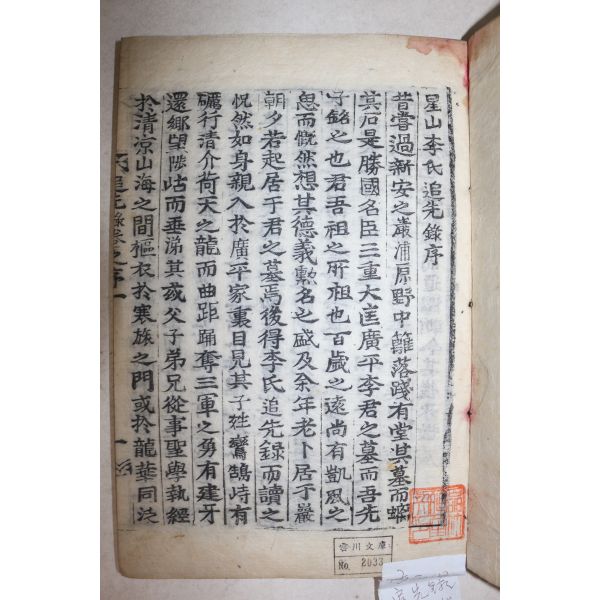 星山李氏追先錄序
昔嘗過新安之巖浦原野中籬落殘有堂其墓而
其石是勝國名臣三重大匡廣平李君之墓而吾先
子銘之也君吾祖之所祖也百歲之遠尚有凱風之
思而慨然想其德義勳名之盛及余年老卜居于巖
朝夕若起居于君之墓焉後得李氏追先錄而讀之
怳然如身親入於廣平家裏目見其子姓鸞鵠峙有
礪行清介荷天之龍而曲距踊奪三軍之勇有建牙
還鄉望陟岵而垂涕其或父子弟兄從事聖學執經
於清凉山海之間樞衣於寒旅之門或於龍華同泛
追先錄卷之序一
雲川文庫
No. 2033
追先錄